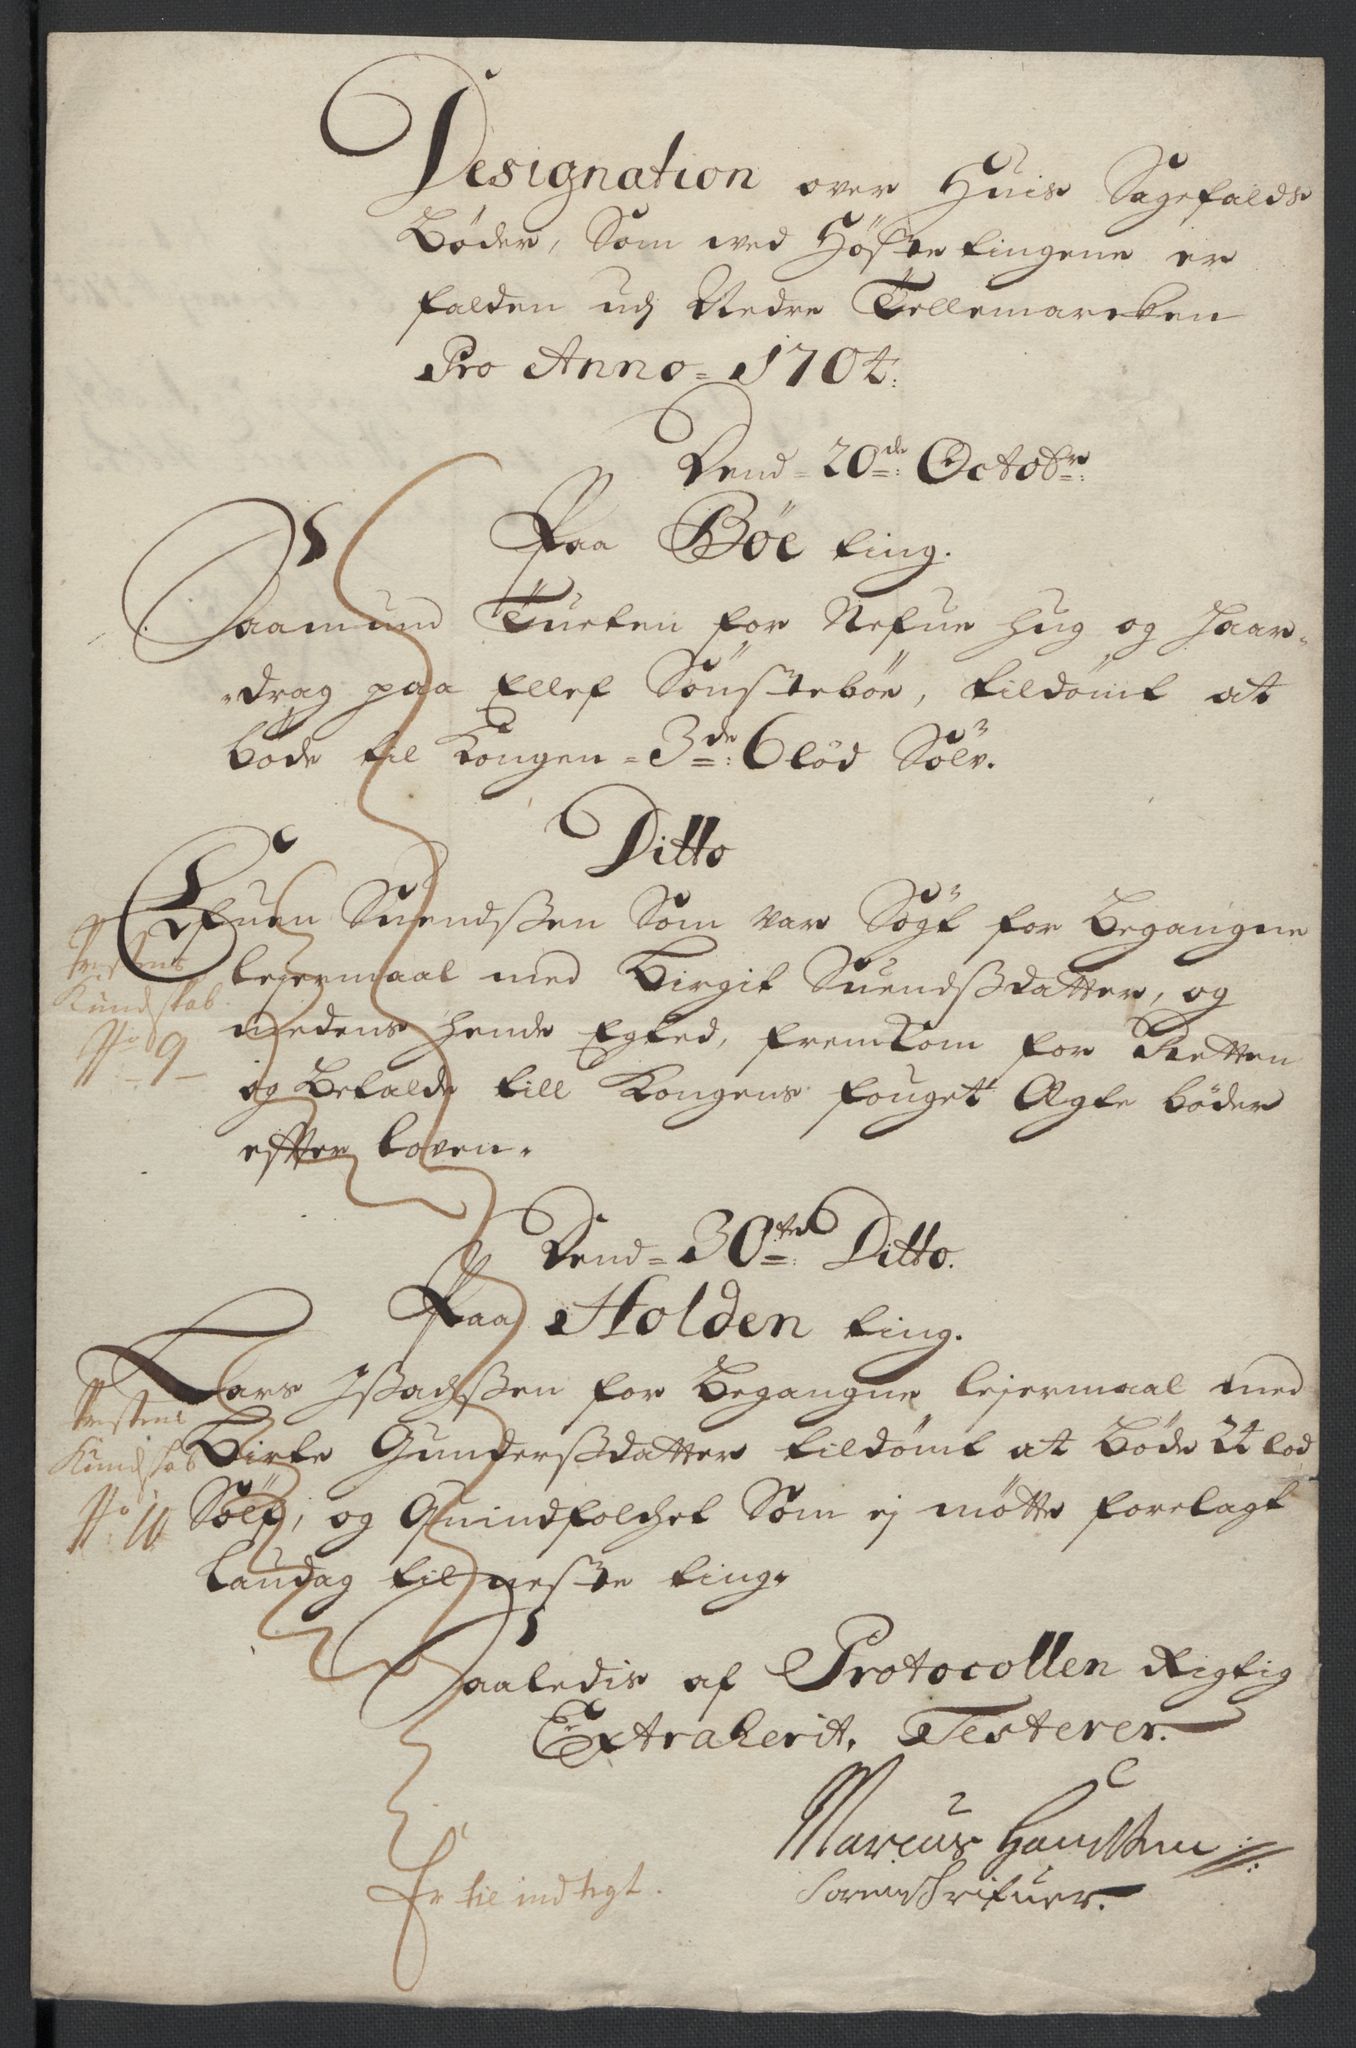 Designation over Huis Sagefalds
Bøder, Som wed Høste tingene er
falden udj Nedre Tellemarcken
Pro Anno = 1704:
Dend = 20de: Octobr:
Paa Bøe ting.
Aamund Tueten for Nefue hug og haar-
drag paa Ellef Sønstebøe, tildømt at
bøde til Kongen = 3de: 6 lod Sølv.
Ditto
Efuen Suendsßen Som var Søgt for Begangne
lejermaal med Birgit Suendsßdatter, og
medens hende Egted, fremkom for Retten
og Betalde till Kongens fouget Ægte bøder
efter loven.
Præstens
Kundskab
No 9
Dend = 30te: Ditto.
Paa Holden ting.
Lars Jßachßen for Begangne lejermaal med
Birte Gundersßdatter tildømt at Bøde 24 lod
Sølf, og Quindfolchet Som ej møtte forelagt
Laudag til neste ting.
Præstens
Kundskab
No 10
Saaledis af Protocollen Rigtig
Extraherit, Testerer.
Marcus Hansßen
Sorenschrifuer.
Er til indtegt.